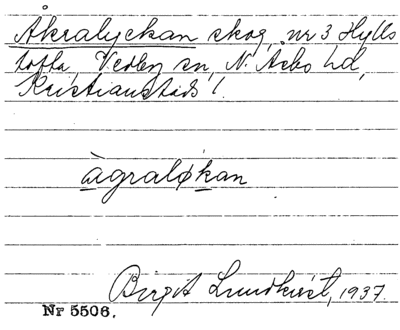 Åkralyckan skog, nr 3 Hylls
tofta, Vedby sn, N. Åsbo hd,
Kristianstads l.
àgraløkan
Birgit Lundkvist, 1937.
Nr 5506.